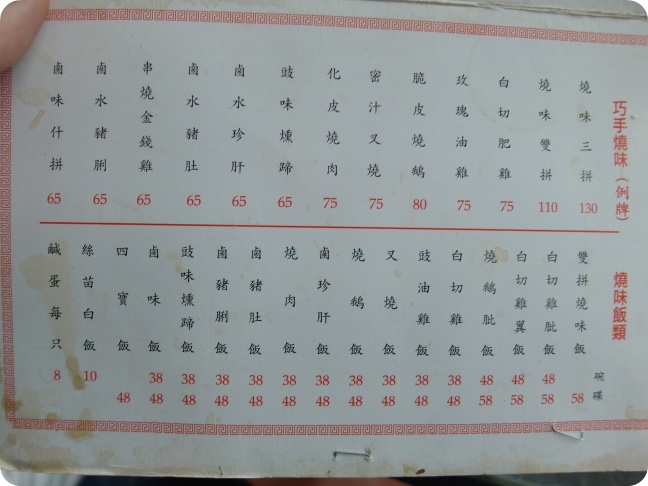 巧手燒味（例牌）
燒味三拼 130
燒味雙拼 110
白切肥雞 75
玫瑰油雞 75
脆皮燒鵝 80
密汁叉燒 75
化皮燒肉 75
豉味燻蹄 65
鹵水珍肝 65
鹵水豬肚 65
串燒金錢雞 65
鹵水豬脷 65
鹵味什拼 65
燒味飯類
碗 碟
雙拼燒味飯 58
白切雞髀飯 48 58
白切雞翼飯 48 58
燒鵝髀飯 48 58
白切雞飯 38 48
豉油雞飯 38 48
叉燒飯 38 48
燒鵝飯 38 48
鹵珍肝飯 38 48
燒肉飯 38 48
鹵豬肚飯 38 48
鹵豬脷飯 38 48
豉味燻蹄飯 38 48
鹵味飯 38 48
四寶飯 48
絲苗白飯 10
鹹蛋每只 8